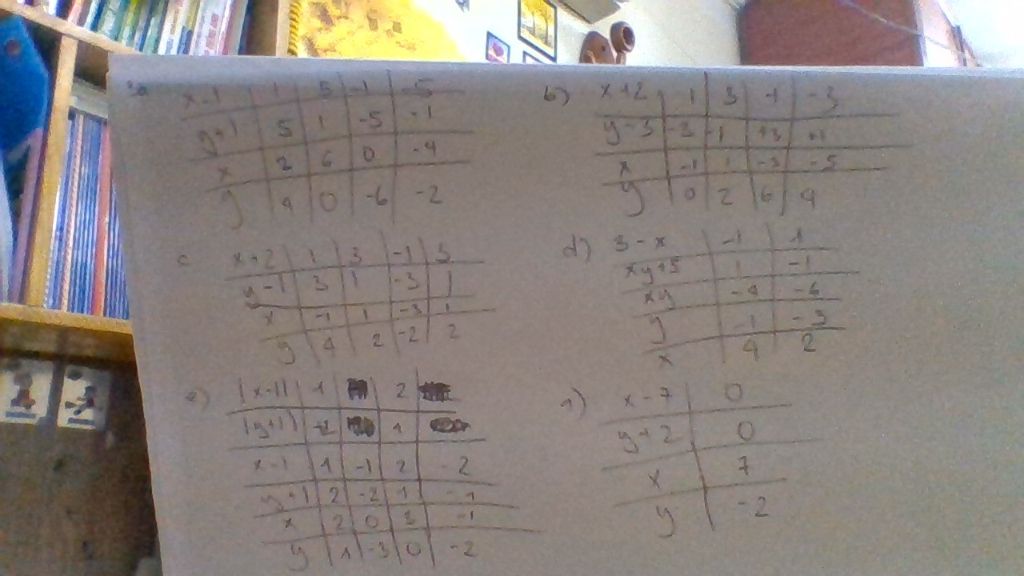 x-1 | 1 | 5 | -1 | -5
y+1 | 5 | 1 | -5 | -1
x | 2 | 6 | 0 | -4
y | 4 | 0 | -6 | -2
b) x+2 | 1 | 3 | -1 | -3
y-3 | -3 | -1 | +3 | +1
x | -1 | 1 | -3 | -5
y | 0 | 2 | 6 | 4
c x+2 | 1 | 3 | -1 | 3
y-1 | 3 | 1 | -3 | 1
x | -1 | 1 | -3 | 1
y | 4 | 2 | -2 | 2
d) 3-x | -1 | 1
xy+5 | 1 | -1
xy | -4 | -6
y | -1 | -3
x | 4 | 2
e) |x-1| | 1 | 2
|y+1| | 2 | 1
x-1 | 1 | -1 | 2 | -2
y+1 | 2 | -2 | 1 | -1
x | 2 | 0 | 3 | -1
y | 1 | -3 | 0 | -2
x-7 | 0
y+2 | 0
x | 7
y | -2